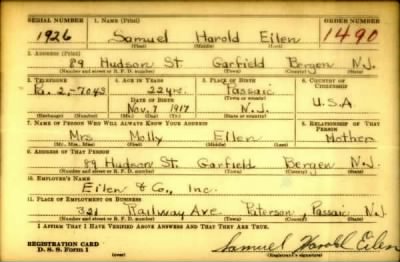 SERIAL NUMBER 1. NAME (Print) ORDER NUMBER
1926 Samuel Harold Eilen 1490
(First) (Middle) (Last)
2. ADDRESS (Print)
89 Hudson St. Garfield Bergen N.J.
(Number and street or R. F. D. number) (Town) (County) (State)
3. TELEPHONE 4. AGE IN YEARS 5. PLACE OF BIRTH 6. COUNTRY OF CITIZENSHIP
Pa. 2-7043 22 yrs. Passaic
DATE OF BIRTH (Town or county)
Nov. 7 1917 N.J. U.S.A.
(Exchange) (Number) (Mo.) (Day) (Yr.) (State or country)
7. NAME OF PERSON WHO WILL ALWAYS KNOW YOUR ADDRESS 8. RELATIONSHIP OF THAT PERSON
Mrs Molly Eilen Mother
(Mr., Mrs., Miss) (First) (Middle) (Last)
9. ADDRESS OF THAT PERSON
89 Hudson St. Garfield Bergen N.J.
(Number and street or R. F. D. number) (Town) (County) (State)
10. EMPLOYER'S NAME
Eilen & Co., Inc.
11. PLACE OF EMPLOYMENT OR BUSINESS
321 Railway Ave. Paterson, Passaic N.J.
(Number and street or R. F. D. number) (Town) (County) (State)
I AFFIRM THAT I HAVE VERIFIED ABOVE ANSWERS AND THAT THEY ARE TRUE.
REGISTRATION CARD
D. S. S. Form 1 (over) Samuel Harold Eilen
(Registrant's signature)